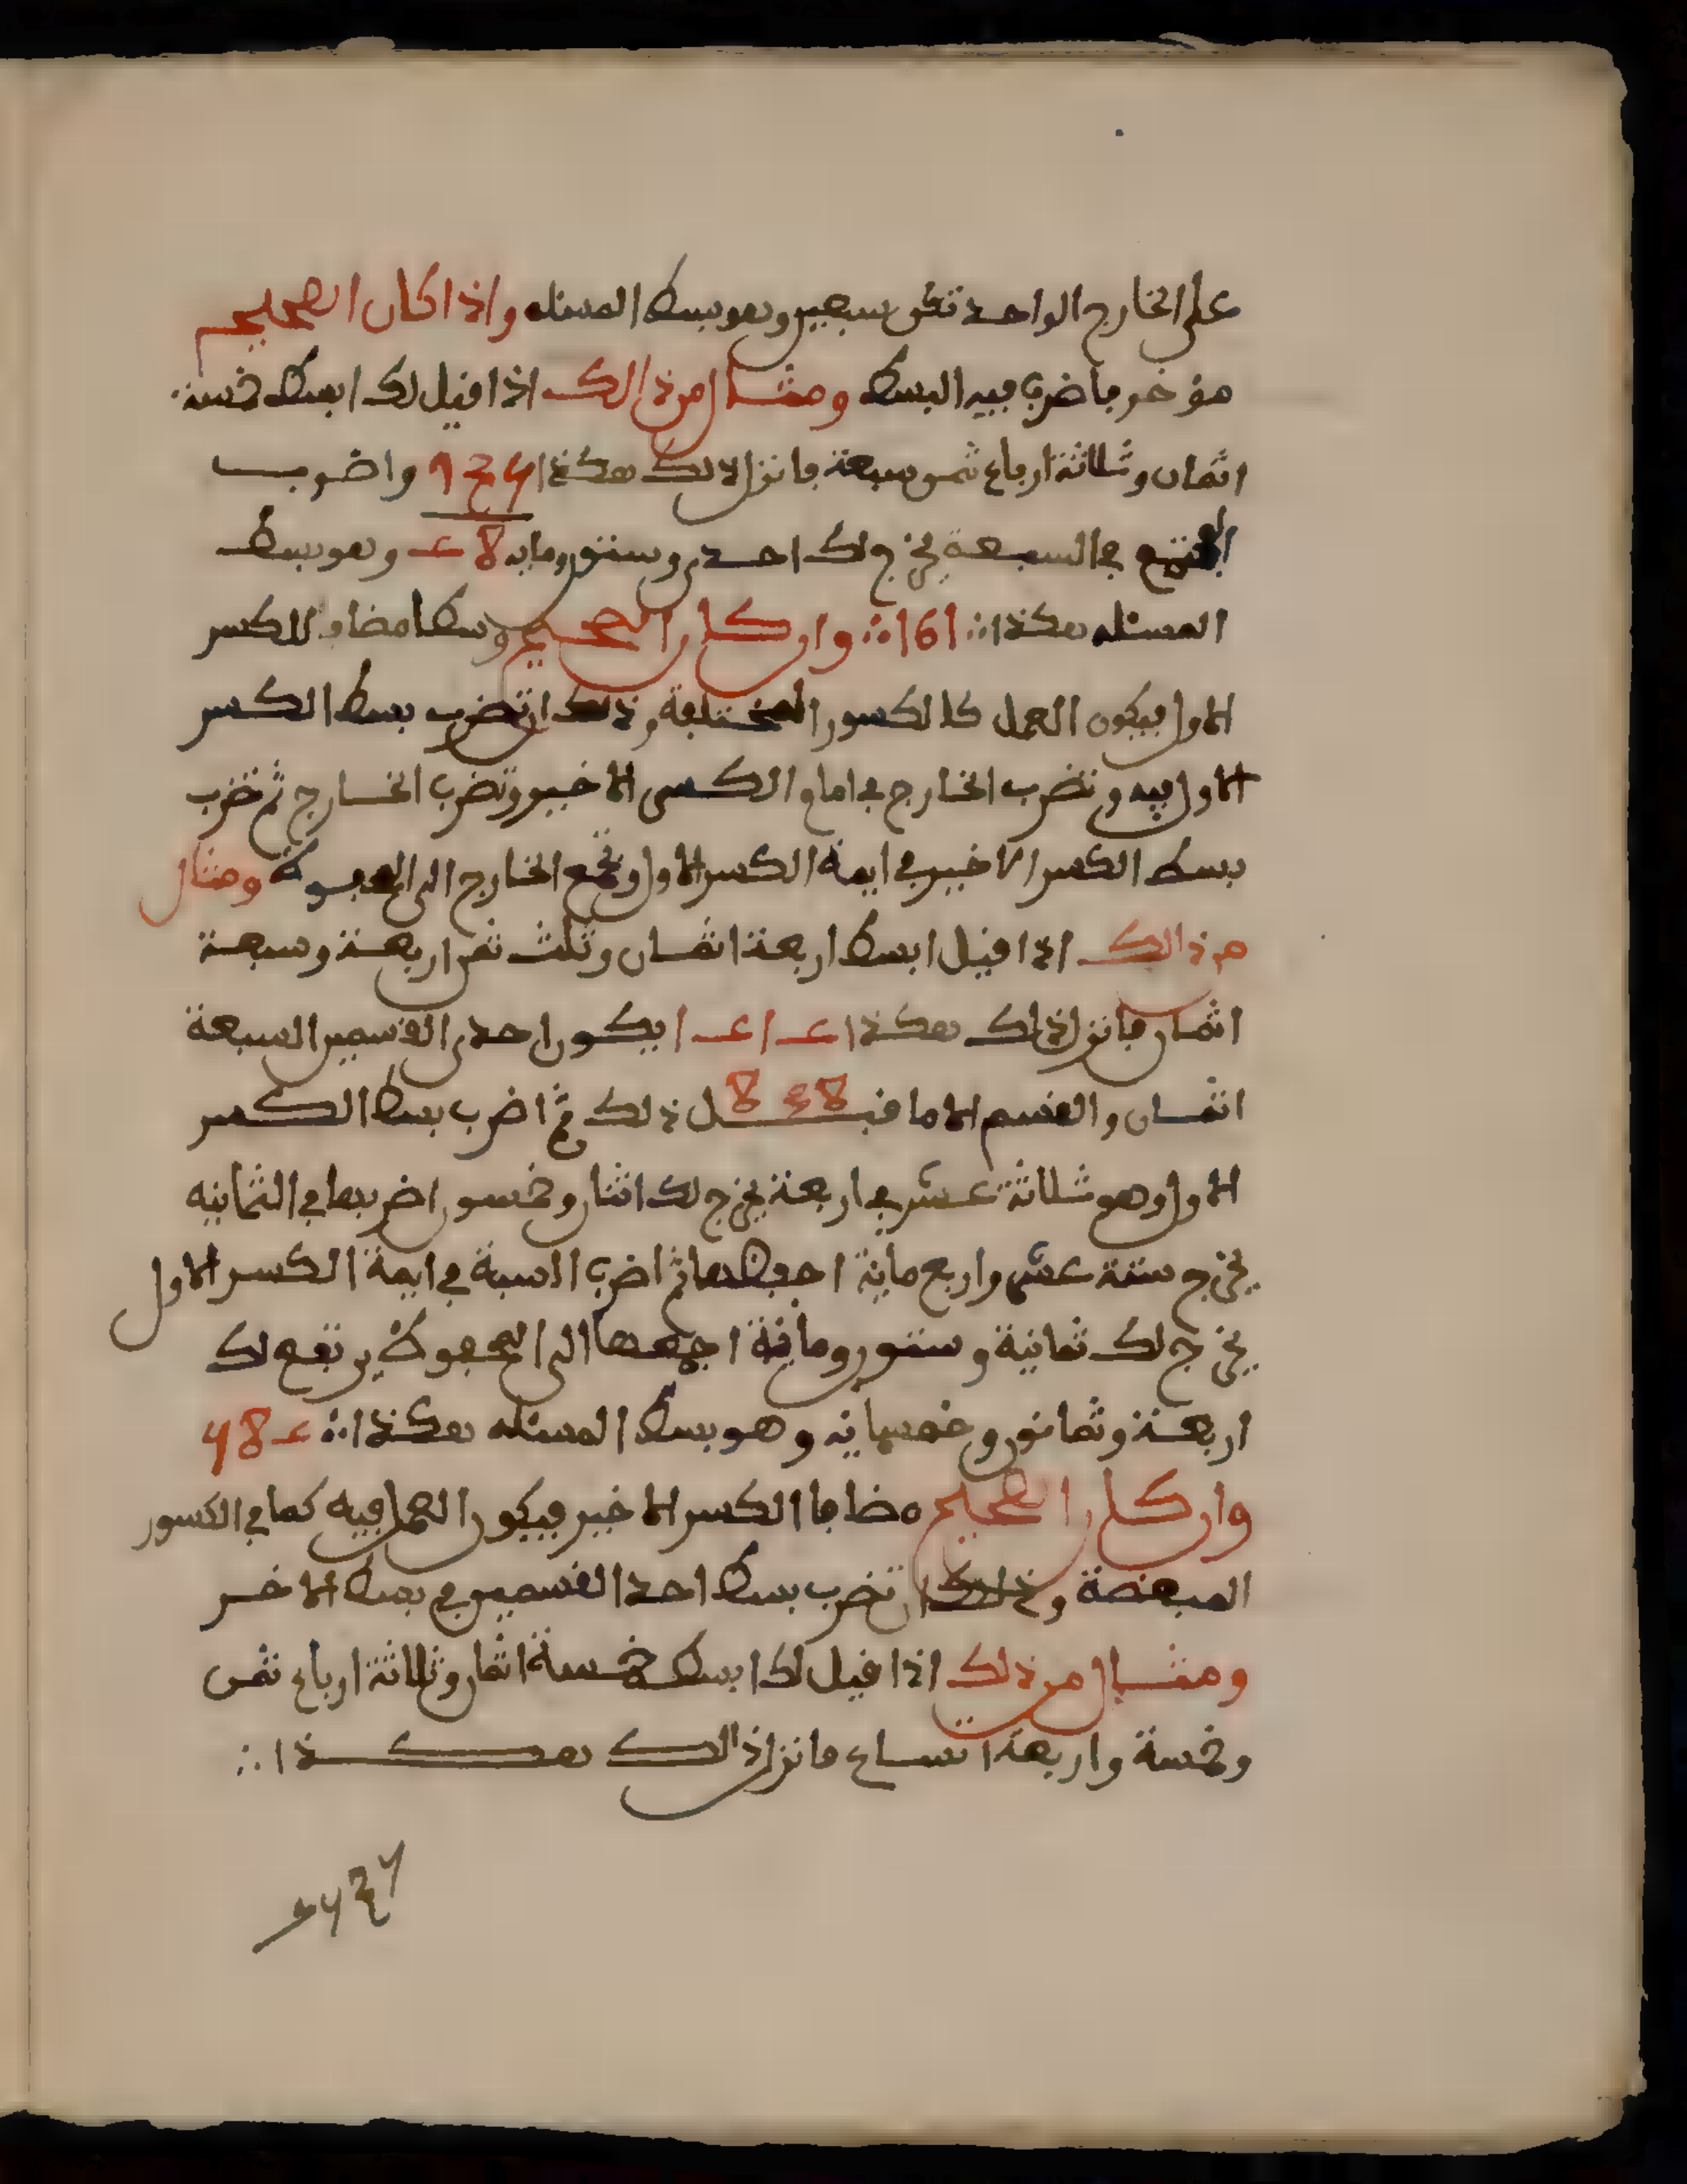 على الخارج الواحد تكن سبعين وهو بسط المسئله واذا كان الصحيح
مؤخر فاضرب فيه البسط ومثال من ذالك اذا قيل لك ابسط خمسة
اثمان وثلاثة ارباع ثمن وسبعة فانزل ذلك هكذا واضرب
المجتمع في السبعة يخرج لك احدى وستون ومايه وهو بسط
المسئله هكذا ∴ 161 ∴ وان كان الصحيح وسطا مضاف للكسر
الاول فيكون العمل كالكسور المختلفة وذلك ان تضرب بسط الكسر
الاول فيه وتضرب الخارج في امام الكسر الاخير وتضرب الخارج ثم تضرب
بسط الكسر الاخير في ايمة الكسر الاول وتجمع الخارج الى المحفوظ ومثال
من ذالك اذا قيل ابسط اربعة اثمان وثلث ثمن اربعة وسبعة
اثمان فانزل ذلك هكذا يكون احدى القسمين السبعة
اثمان والقسم الاما قبل ذلك ثم اضرب بسط الكسر
الاول وهو ثلاثة عشر في اربعة يخرج لك اثنان وخمسون اضربها في الثمانيه
يخرج ستة عشر واربع ماية احفظها ثم اضرب السبعة في ايمة الكسر الاول
يخرج لك ثمانية وستون وماية اجمعها الى المحفوظ يرتفع لك
اربعة وثمانون وخمسماية وهو بسط المسئله هكذا ∴
وان كان الصحيح مضافا الكسر الاخير فيكون العمل فيه كما في الكسور
المبعضة وذلك ان تضرب بسط احد القسمين في بسط الاخر
ومثال من ذلك اذا قيل لك ابسط خمسة اثمان وثلاثة ارباع ثمن
وخمسة واربعة اتساع فانزل ذالك هكذا ∴